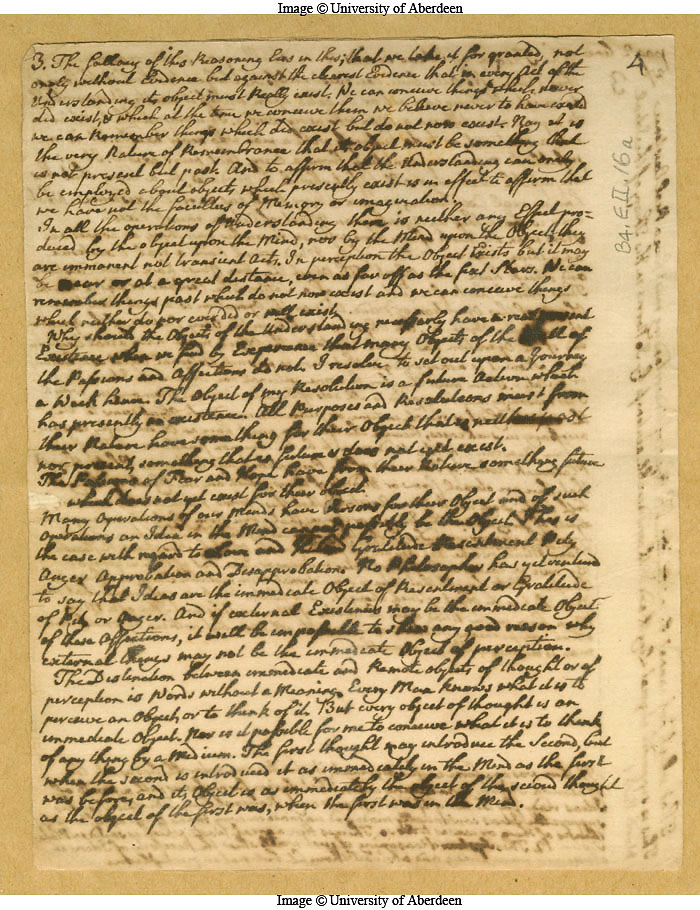 Image © University of Aberdeen
4
B4.EII.16a
3. The fallacy of this Reasoning lies in this; that we take it for granted, not
onely without Evidence but against the clearest Evidence that in every Act of the
Understanding its object must Really exist. We can conceive things which never
did exist, & which at the time we conceive them we believe never to have existd
we can Remember things which did exist but do not now exist. Nay it is
the very Nature of Remembrance that its object must be something that
is not present but past. And to affirm that the Understanding can onely
be employed about objects which presently exist is in effect to affirm that
we have not the faculties of Memory or imagination.
In all the operations of Understanding there is neither any Effect pro=
duced by the object upon the Mind, nor by the Mind upon the Object they
are immanent not transient Acts. In perception the Object Exists but it may
be near or at a great distance, even as far off as the fixt Stars. We can
remember things past which do not now exist and we can conceive things
which neither do nor ever did or will exist.
Why should the Objects of the Understanding necessarly have a real present
Existence when we find by Experience that many Objects of the Will of
the Passions and Affections do not. I resolve to set out upon a Journey
a Week hence. The Object of my Resolution is a future Action which
has presently no existence. All Purposes and Resolutions must from
their Nature have something for their Object that is neither past
nor present, something that is future & does not yet exist.
The Passions of Fear and Hope have from their Nature something future
which does not yet exist for their object.
Many Operations of our Minds have Persons for their Object and of such
Operations an Idea in the Mind cannot possibly be the Object. This is
the case with regard to Love and Gratitude Resentment Pity
Anger Approbation and Disapprobation. No Philosopher has yet ventured
to say that Ideas are the immediate Object of Resentment or Gratitude
of Pity or Anger. And if external Existences may be the immediate Object
of these Affections, it will be impossible to shew any good reason why
external things may not be the immediate Object of perception.
The Distinction between immediate and Remote objects of thought or of
perception is Words without a Meaning. Every Man knows what it is to
perceive an Object, or to think of it. But every object of thought is an
immediate Object. Nor is it possible for me to conceive what it is to think
of any thing by a Medium. The first thought may introduce the Second, but
when the second is introduced it as immediately in the Mind as the first
was before, and its Object is as immediately the object of the second thought
as the object of the first was, when the first was in the Mind.
Image © University of Aberdeen